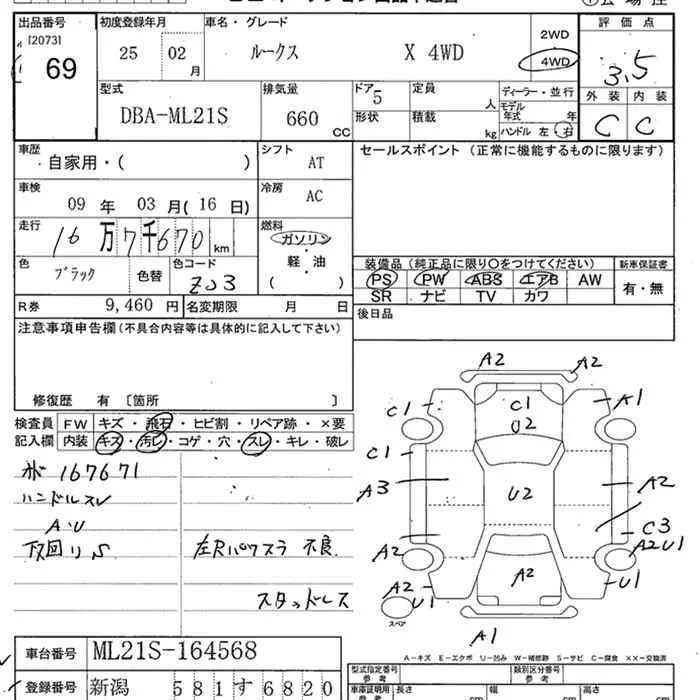 出品番号 初度登録年月 車名・グレード 評価点
[2073]
69 25 02月 ルークス X 4WD 2WD 4WD 3.5
型式 排気量 ドア 定員 ディーラー・並行 外装 内装
DBA-ML21S 660 CC 5 人 モデル年式 年 C C
形状 積載 kg ハンドル 左・右
車歴 自家用・( ) シフト AT セールスポイント (正常に機能するものに限ります)
車検 09年 03月(16日) 冷房 AC
走行 16万7千670 km 燃料 ガソリン・軽・油 ( )
色 ブラック 色替 色コード Z03 装備品(純正品に限り○をつけてください) 新車保証書
PS PW ABS エアB AW 有・無
SR ナビ TV カワ
R券 9,460円 名変期限 月 日 後日品
注意事項申告欄(不具合内容等は具体的に記入して下さい)
修復歴 有 〔箇所 〕
検査員 FW キズ・飛石・ヒビ割・リペア跡・×要
記入欄 内装 キズ・汚レ・コゲ・穴・スレ・キレ・破レ
167671
ハンドルスレ
A・U
下回りS 左Rパワスラ 不良
スタッドレス
A2 A2
C1 C1 A1
U2
C1
A3 U2 A2
C3
A2 A2U1
A2 A2 U1
U1
スペア
A1
A-キズ E-エクボ U-凹み W-補修跡 S-サビ C-腐食 ××-交換済
車台番号 ML21S-164568 型式指定番号 参考 類別区分番号 参考
登録番号 新潟 581す6820 車庫証明用 参考 長さ cm 幅 cm 高さ cm